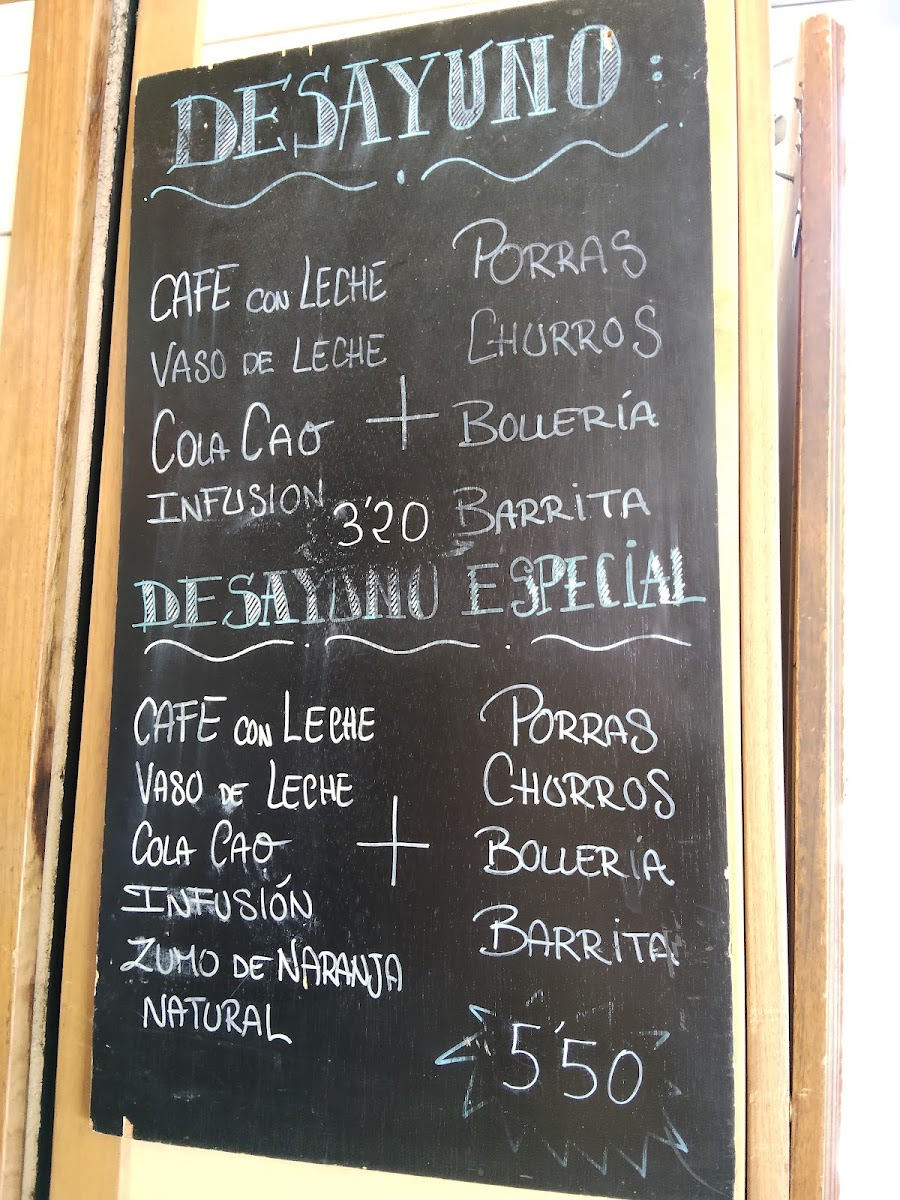 DESAYUNO:
CAFE CON LECHE
VASO DE LECHE
COLA CAO
INFUSION
+
PORRAS
CHURROS
BOLLERÍA
BARRITA
3'20
DESAYUNO ESPECIAL
CAFE CON LECHE
VASO DE LECHE
COLA CAO
INFUSIÓN
ZUMO DE NARANJA
NATURAL
+
PORRAS
CHURROS
BOLLERIA
BARRITA
5'50